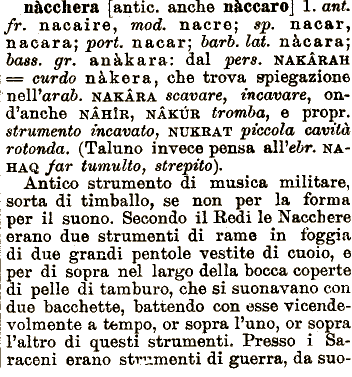 nàcchera [antic. anche nàccaro] 1. ant.
fr. nacaire, mod. nacre; sp. nacar,
nacara; port. nacar; barb. lat. nàcara;
bass. gr. anàkara: dal pers. NAKÂRAH
= curdo nàkera, che trova spiegazione
nell'arab. NAKÂRA scavare, incavare, on-
d'anche NÂHÎR, NÂKÚR tromba, e propr.
strumento incavato, NUKRAT piccola cavità
rotonda. (Taluno invece pensa all'ebr. NA-
HAQ far tumulto, strepito).
Antico strumento di musica militare,
sorta di timballo, se non per la forma
per il suono. Secondo il Redi le Nacchere
erano due strumenti di rame in foggia
di due grandi pentole vestite di cuoio, e
per di sopra nel largo della bocca coperte
di pelle di tamburo, che si suonavano con
due bacchette, battendo con esse vicende-
volmente a tempo, or sopra l'uno, or sopra
l'altro di questi strumenti. Presso i Sa-
raceni erano strumenti di guerra, da suo-